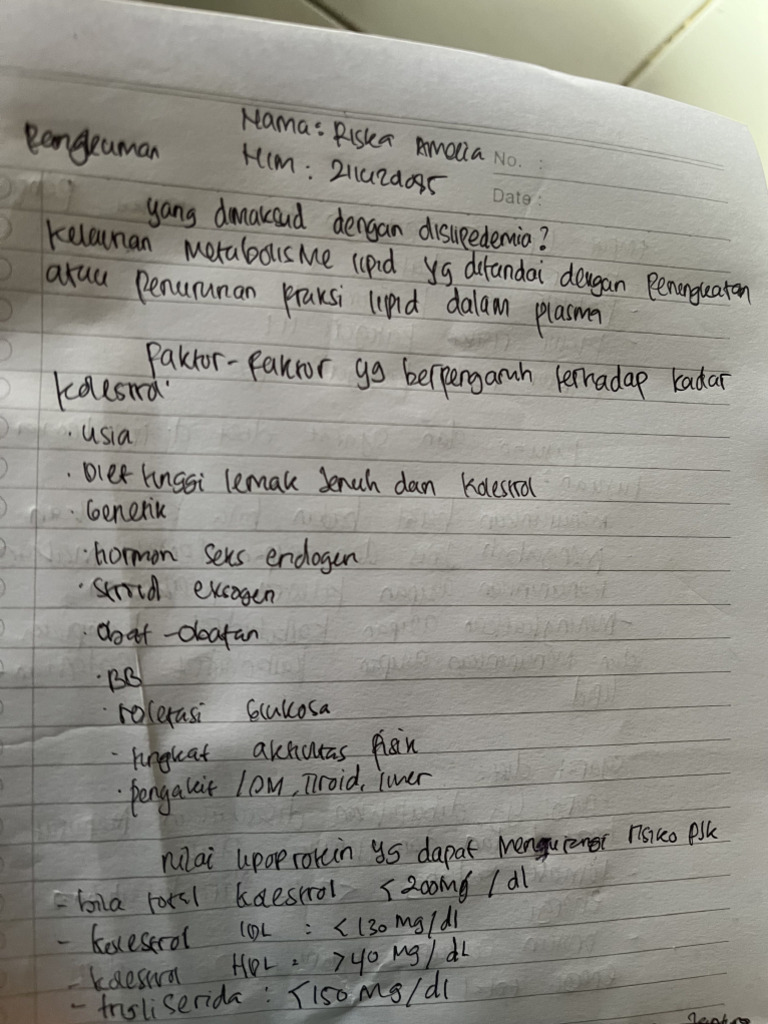 Nama: Riska Amelia
Rangkuman
No. :
NIM :
Date :
yang dimaksud dengan dislipedemia?
Kelainan Metabolisme lipid yg ditandai dengan Peningkatan
atau penurunan fraksi lipid dalam plasma
Faktor-faktor yg berpengaruh terhadap kadar
kolestrol
· usia
· Diet tinggi lemak Jenuh dan kolestrol
· Genetik
· hormon seks endogen
· steroid eksogen
· obat-obatan
· BB
· tolerasi Glukosa
· tingkat aktivitas fisik
· pengakit / DM, Tiroid, liver
nilai lipoprotein yg dapat mengurangi risiko PJK
- bila total kolestrol < 200 mg / dl
- kolestrol LDL : < 130 mg/dl
- kolestrol HDL : > 40 mg/dL
- trigliserida : < 150 mg/dl